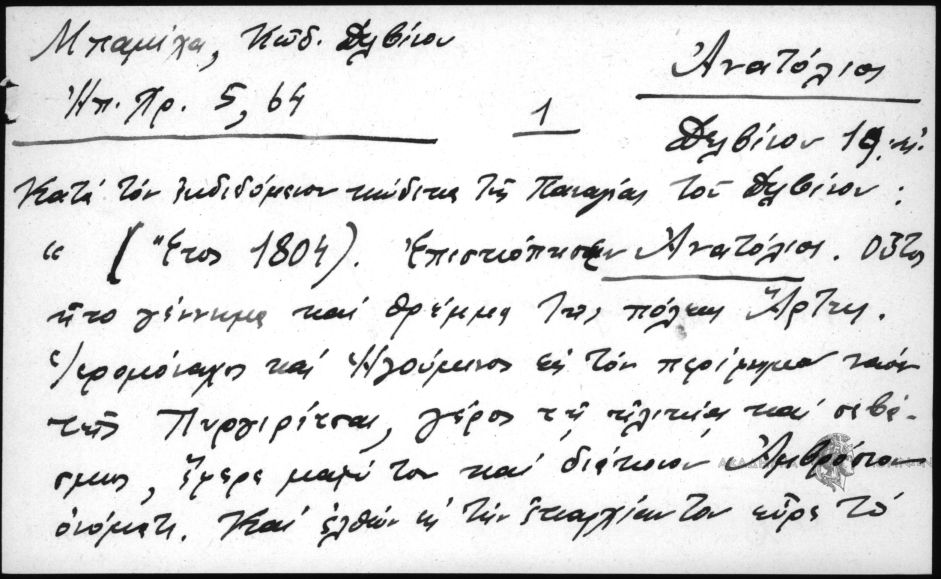 Μπαμίχα, Κώδ. Δελβίνου
Ἠπ. Χρ. 5, 64
Ἀνατόλιος
1
Δελβίνου 19. αἰ.
Κατά τόν ἐκδιδόμενον κώδικα τῆς Παναγίας τοῦ Δελβίνου :
“ ( Ἔτος 1804). Ἐπισκόπησεν Ἀνατόλιος. Οὗτος
ἦτο γέννημα καί θρέμμα τῆς πόλεως Ἄρτης.
Ἱερομόναχος καί Ἡγούμενος εἰς τόν περίφημον ναόν
τῆς Παργιορίτσας, γέρος τῇ ἡλικίᾳ καί σεβά-
σμιος, ἔφερε μαζύ του καί διάκονον Ἀμβρόσιον
ὀνόματι. Καί ἐλθών εἰς τήν ἐπαρχίαν του εὗρε τό